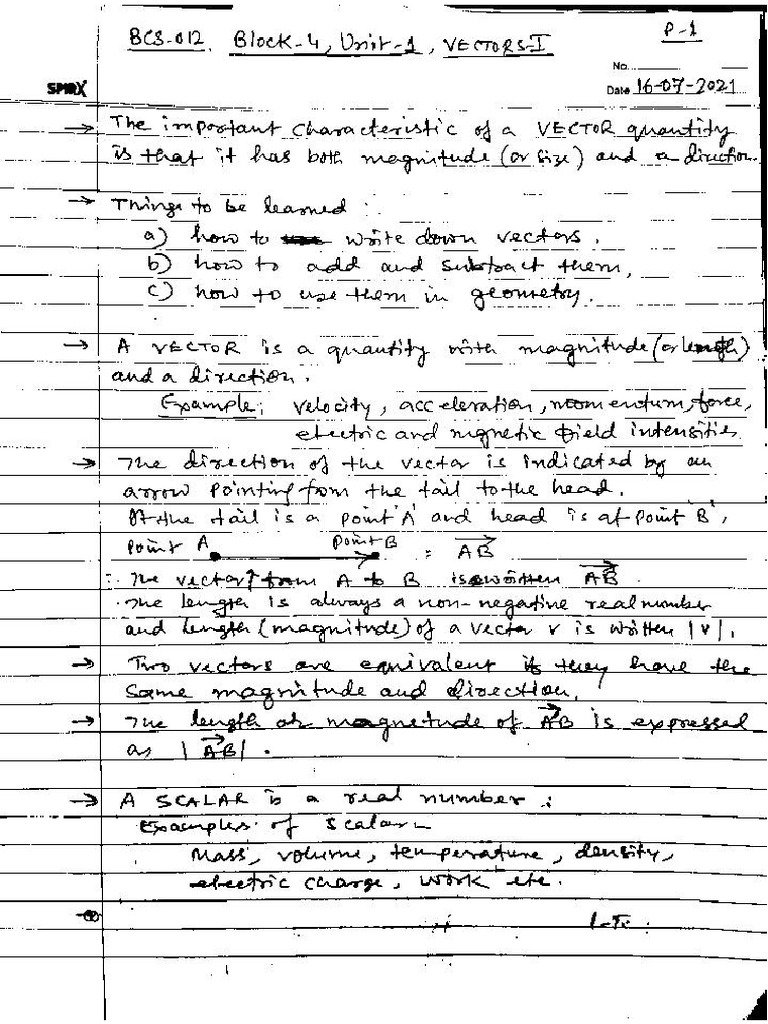 P-1
BCS-012, Block-4, Unit-1, VECTORS-I
No.
SPIRX Date 16-07-2021
→ The important characteristic of a VECTOR quantity
is that it has both magnitude (or size) and a direction.
→ Things to be learned:
a) how to write down vectors.
b) how to add and substract them,
c) how to use them in geometry.
→ A VECTOR is a quantity with magnitude (or length)
and a direction.
Example: velocity, acceleration, momentum, force,
electric and mgnetic field intensities
→ The direction of the vector is indicated by an
arrow pointing from the tail to the head.
If the tail is a point 'A' and head is at point 'B',
Point A Point B = AB
∴ The vector from A to B is written AB
The length is always a non-negative real number
and length (magnitude) of a vector v is written |v|.
→ Two vectors are equivalent if they have the
same magnitude and direction.
→ The length or magnetude of AB is expressed
as |AB|.
→ A SCALAR is a real number:
Examples of scalar-
Mass, volume, temperature, density,
electric charge, work etc.